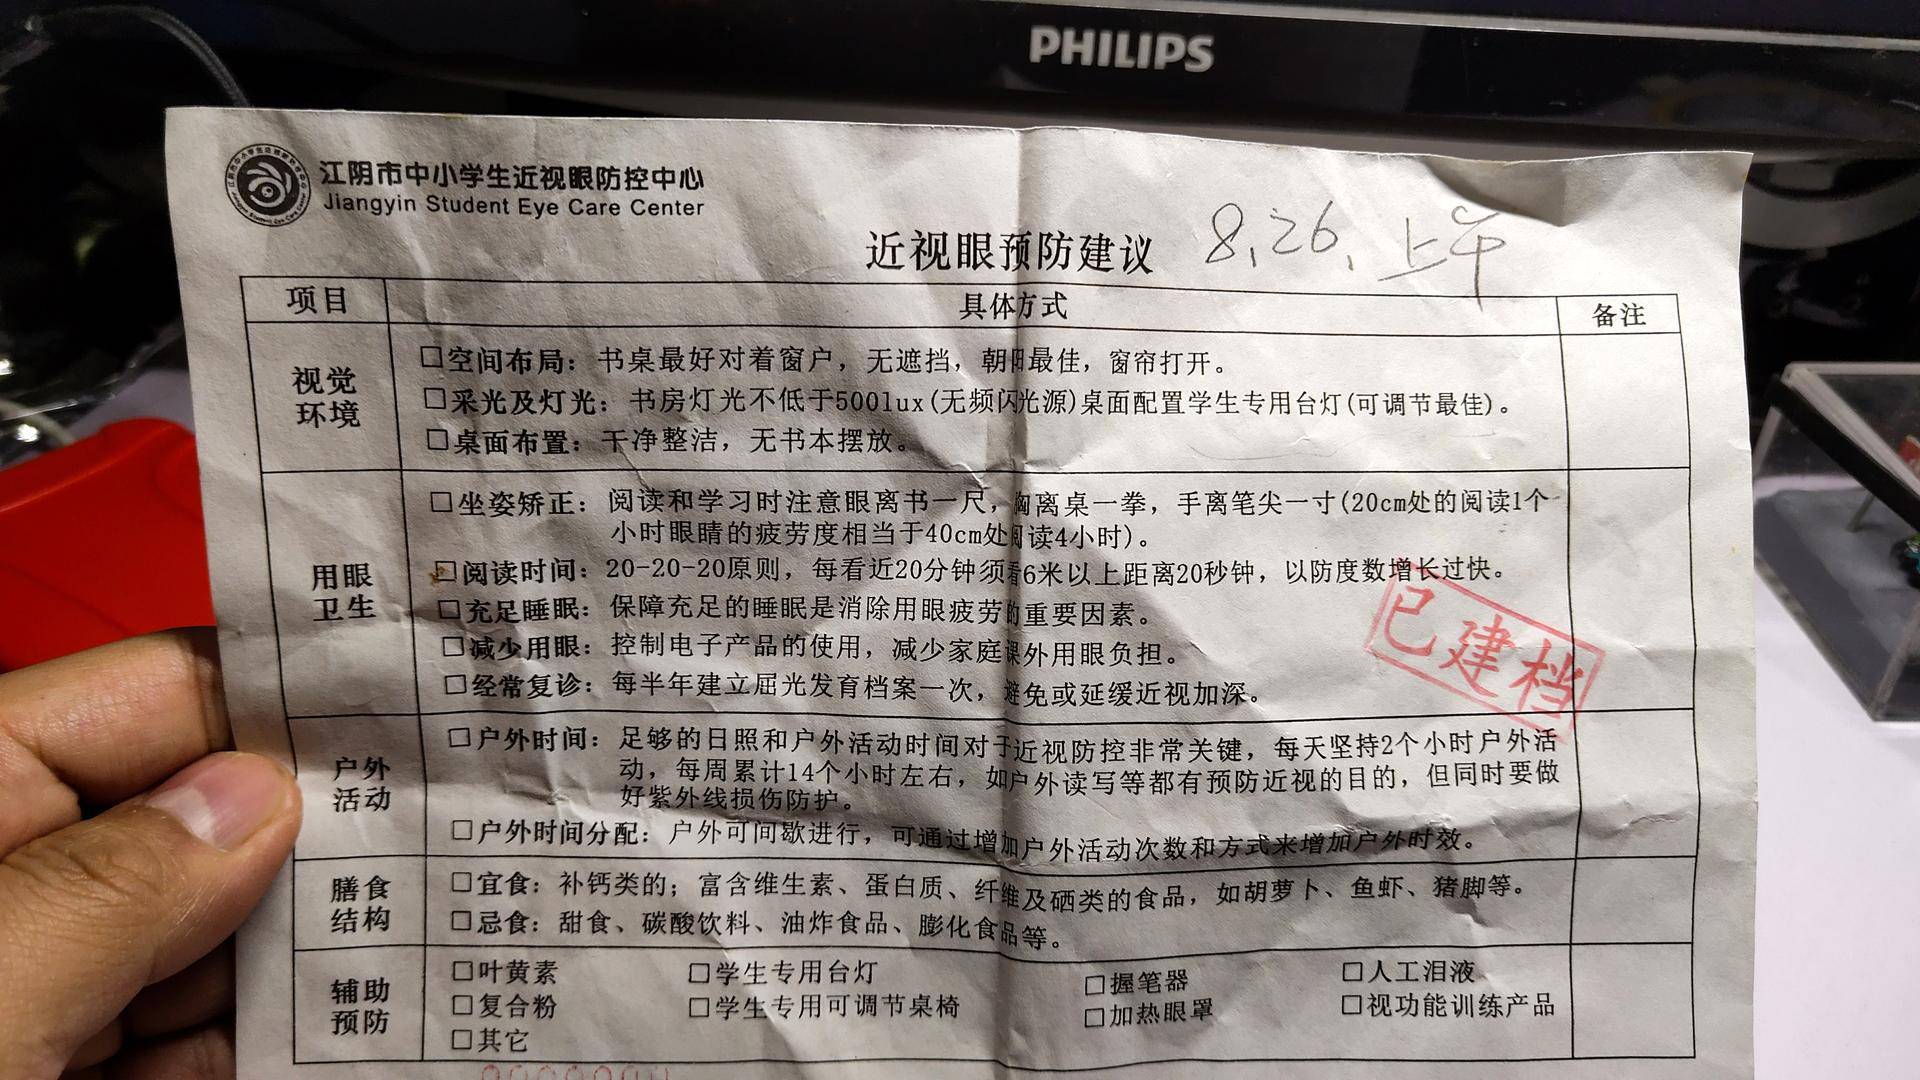 PHILIPS
江阴市中小学生近视眼防控中心
Jiangyin Student Eye Care Center
近视眼预防建议 8.26.上午
项目 具体方式 备注
视觉
环境
□空间布局：书桌最好对着窗户，无遮挡，朝阳最佳，窗帘打开。
□采光及灯光：书房灯光不低于500lux(无频闪光源)桌面配置学生专用台灯(可调节最佳)。
□桌面布置：干净整洁，无书本摆放。
用眼
卫生
□坐姿矫正：阅读和学习时注意眼离书一尺，胸离桌一拳，手离笔尖一寸(20cm处的阅读1个
小时眼睛的疲劳度相当于40cm处阅读4小时)。
□阅读时间：20-20-20原则，每看近20分钟须看6米以上距离20秒钟，以防度数增长过快。
□充足睡眠：保障充足的睡眠是消除用眼疲劳的重要因素。
□减少用眼：控制电子产品的使用，减少家庭课外用眼负担。
□经常复诊：每半年建立屈光发育档案一次，避免或延缓近视加深。
已建档
户外
活动
□户外时间：足够的日照和户外活动时间对于近视防控非常关键，每天坚持2个小时户外活
动，每周累计14个小时左右，如户外读写等都有预防近视的目的，但同时要做
好紫外线损伤防护。
□户外时间分配：户外可间歇进行，可通过增加户外活动次数和方式来增加户外时效。
膳食
结构
□宜食：补钙类的；富含维生素、蛋白质、纤维及硒类的食品，如胡萝卜、鱼虾、猪脚等。
□忌食：甜食、碳酸饮料、油炸食品、膨化食品等。
辅助
预防
□叶黄素 □学生专用台灯 □握笔器 □人工泪液
□复合粉 □学生专用可调节桌椅 □加热眼罩 □视功能训练产品
□其它